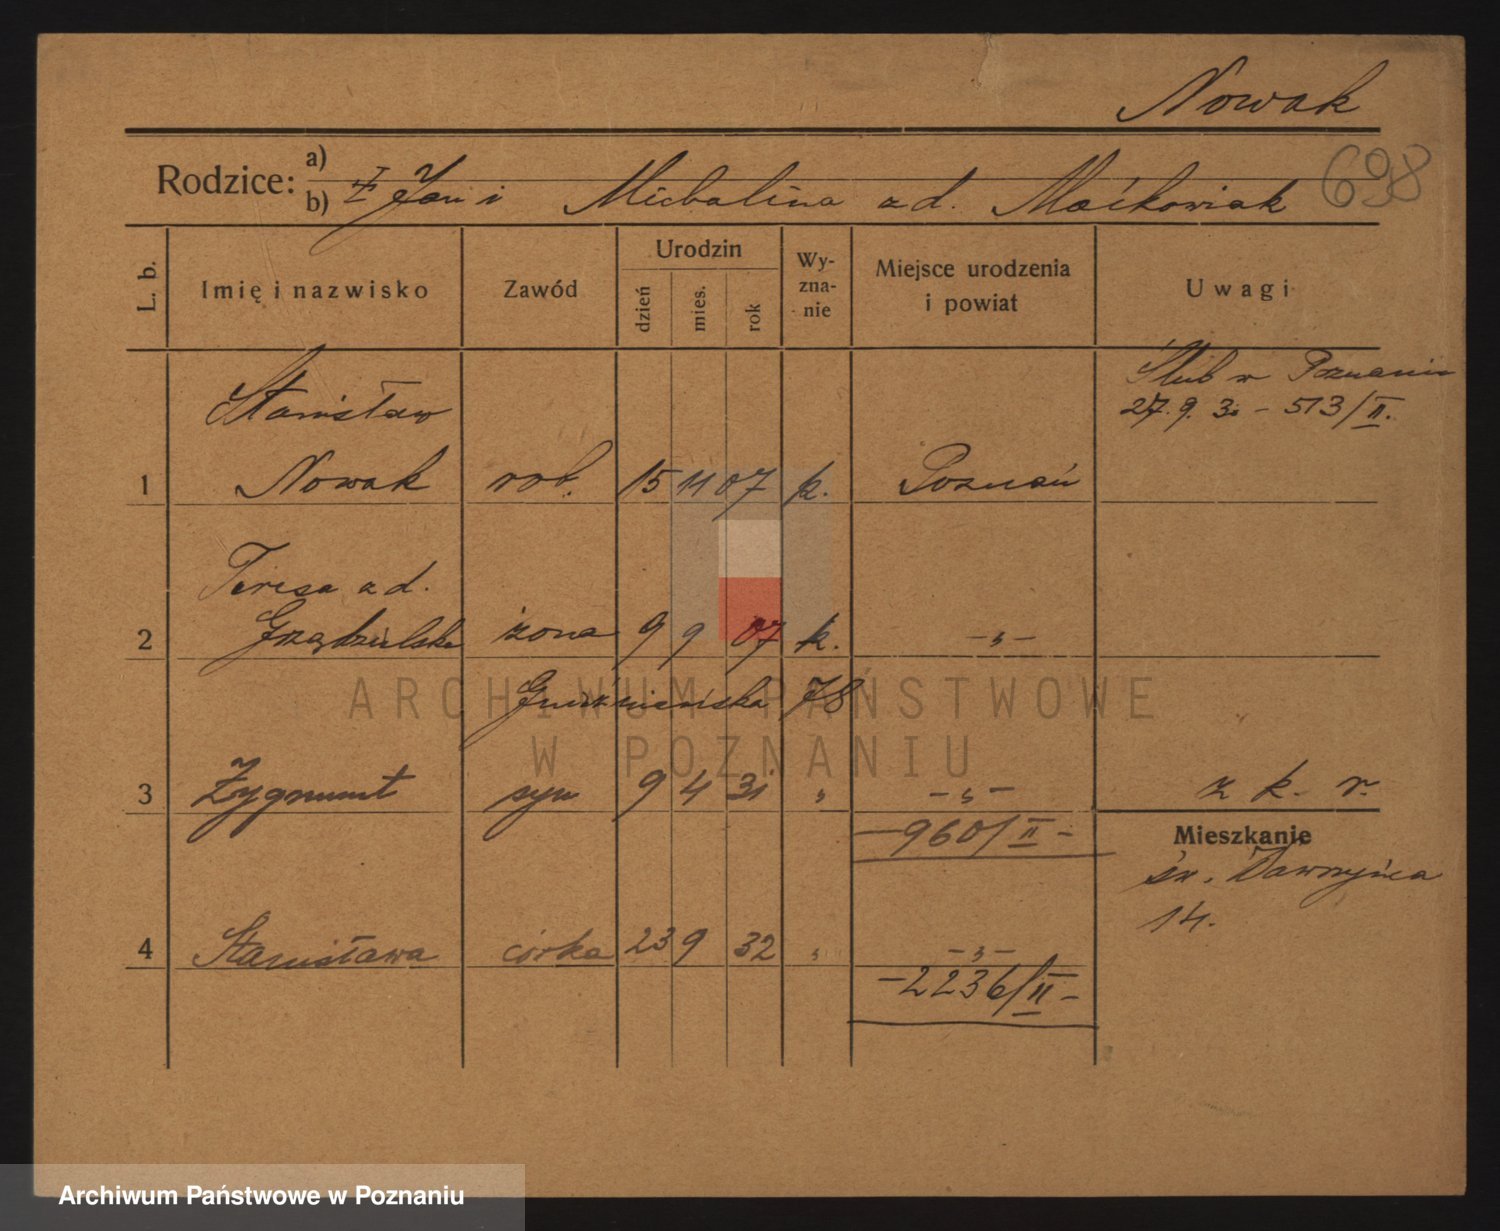 Nowak
698
Rodzice: a)
b) I Jan i Michalina z d. Maćkowiak
L. b.
Imię i nazwisko
Zawód
Urodzin
dzień
mies.
rok
Wy-
zna-
nie
Miejsce urodzenia
i powiat
Uwagi
Ślub w Poznaniu
27.9.30 – 513/II.
Stanisław
1 Nowak rob. 15 11 07 k. Poznań
Teresa z d.
2 Grządzielska żona 9 9 07 k. –„–
Gnieźnieńska 78
3 Zygmunt syn 9 4 31 „ –„– z k. r.
–960/II–
Mieszkanie
św. Wawrzyńca
14.
4 Stanisława córka 23 9 32 „ –„–
–2236/II–
ARCHIWUM PAŃSTWOWE
W POZNANIU
Archiwum Państwowe w Poznaniu